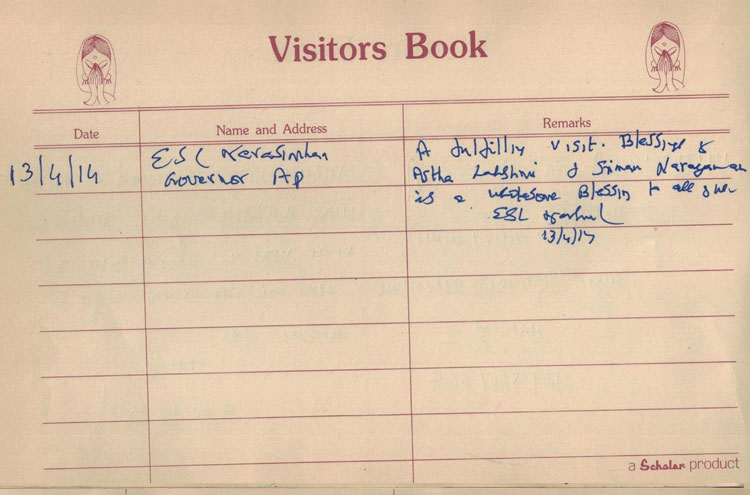 Visitors Book
Date
Name and Address
Remarks
13/4/14
ESL Narasimhan
Governor AP
A fulfilling visit. Blessings of
Astha Lakshmi & Sriman Narayanan
is a wholesome Blessing to all of us
ESL
13/4/14
a Scholar product